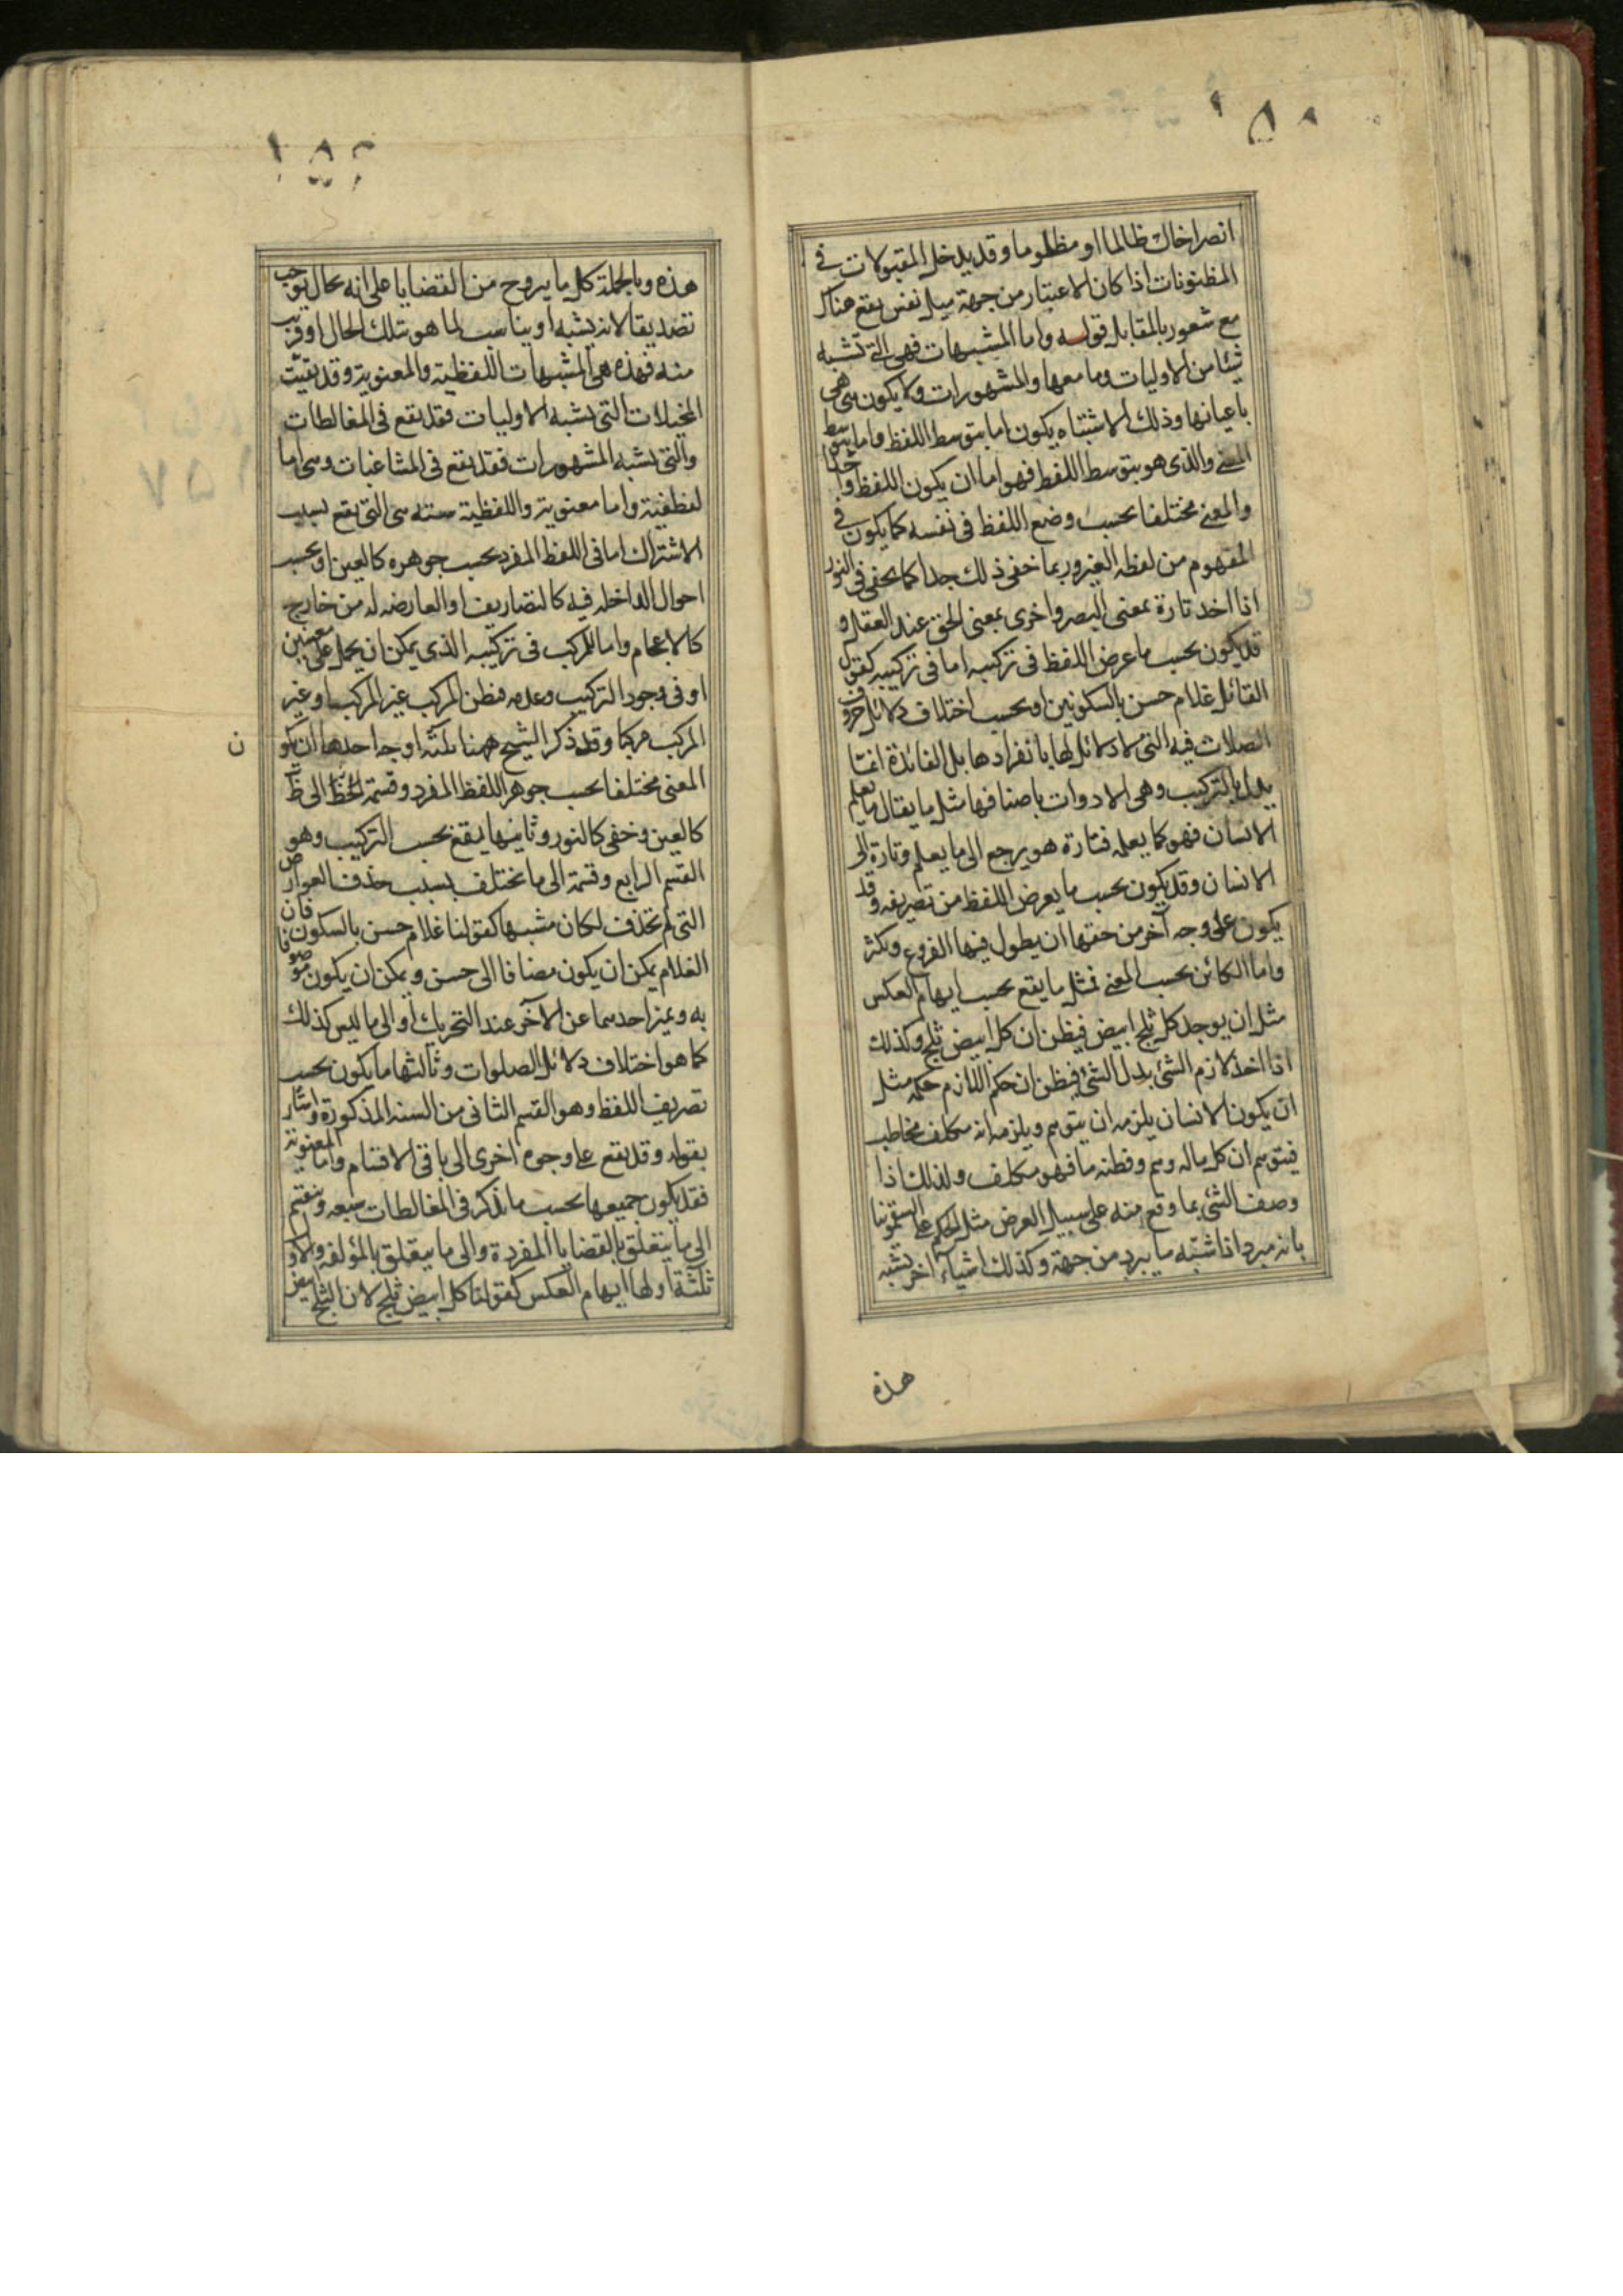 ١٥٨
انصر اخاك ظالما او مظلوما وقد يدخل المقبولات فى
المظنونات اذا كان الاعتبار من جهة ميل نفس يقع هناك
مع شعور بالمقابل قوله واما المشبهات فهى التى تشبه
شيئا من الاوليات وما معها والمشهورات ولا يكون هى هى
باعيانها وذلك الاشتباه يكون اما بتوسط اللفظ واما بتوسط
المعنى والذى هو بتوسط اللفظ فهو اما ان يكون اللفظ واحدا
والمعنى مختلفا بحسب وضع اللفظ فى نفسه كما يكون فى
المفهوم من لفظه العين وربما خفى ذلك جدا كما يخفى فى النور
اذا اخذ تارة بمعنى البصر واخرى بمعنى الحق عند العقل و
قد يكون بحسب ما عرض اللفظ فى تركيبه اما فى تركيبه كقول
القائل غلام حسن بالسكونين او بحسب اختلاف دلائل حروف
الصلات فيه التى لا دلائل لها بانفرادها بل الفائدة انما
يدل بالتركيب وهى الادوات باصنافها مثل ما يقال ما يعلم
الانسان فهو كما يعلمه فتارة هو يرجع الى ما يعلم وتارة الى
الانسان وقد يكون بحسب ما يعرض اللفظ من تصريفه وقد
يكون على وجه آخر من حقها ان يطول فيها الفروع وتكثر
واما الكائن بحسب المعنى فمثل ما يقع بحسب ايهام العكس
مثل ان يوجد كل ثلج ابيض فيظن ان كل ابيض ثلج وكذلك
اذا اخذ لازم الشئ بدل الشئ فيظن ان حكم اللازم حكمه مثل
ان يكون الانسان يلزمه ان يتوهم ويلزمه انه مكلف مخاطب
فيتوهم ان كل ماله وهم وفطنه ما فهو مكلف ولذلك اذا
وصف الشئ بما وقع منه على سبيل العرض مثل الحكم على السقمونيا
بانه مبرد اذا اشبه ما يبرد من جهة وكذلك اشياء اخر تشبه
هذه
هذه وبالجملة كل ما يروج من القضايا على انه بحال توجب
تصديقا لانه يشبه او يناسب لما هو بتلك الحال او قريب
منه فهذه هى المشبهات اللفظية والمعنوية وقد بقيت
المخيلات التى يشبه الاوليات فقد يقع فى المغالطات
والتى يشبه المشهورات فقد يقع فى المشاغبات وهى اما
لفظية واما معنوية واللفظية سته هى التى يقع بسبب
الاشتراك اما فى اللفظ المفرد بحسب جوهره كالعين او بحسب
احوال الداخله فيه كالتصاريف او العارضه له من خارج
كالاعجام واما المركب فى تركيبه الذى يمكن ان يحمل على معنيين
او فى وجود التركيب وعدمه فظن المركب غير المركب او غير
المركب مركبا وقد ذكر الشيخ ههنا ثلثه اوجه احدها ان يكو
ن
المعنى مختلفا بحسب جوهر اللفظ المفرد وقسمته الى ظ
كالعين وخفى كالنور وثانيها يقع بحسب التركيب وهو
القسم الرابع وقسمته الى ما يختلف بسبب حذف العوارض
التى لم تحذف لكان مشبها كقولنا غلام حسن بالسكون فان
الغلام يمكن ان يكون مضافا الى حسن ويمكن ان يكون موصوفا
به ويميز احدهما عن الآخر عند التحريك او الى ما ليس كذلك
كما هو اختلاف دلائل الصلوات وثالثها ما يكون بحسب
تصريف اللفظ وهو القسم الثانى من السته المذكورة واشار
بقوله وقد يقع على وجوه اخرى الى باقى الاقسام واما المعنوية
فقد يكون جميعها بحسب ما يذكر فى المغالطات سبعه وينقسم
الى ما يتعلق بالقضايا المفردة والى ما يتعلق بالمؤلفه والاول
ثلثة اولها ايهام العكس كقولنا كل ابيض ثلج لان الثلج ابيض